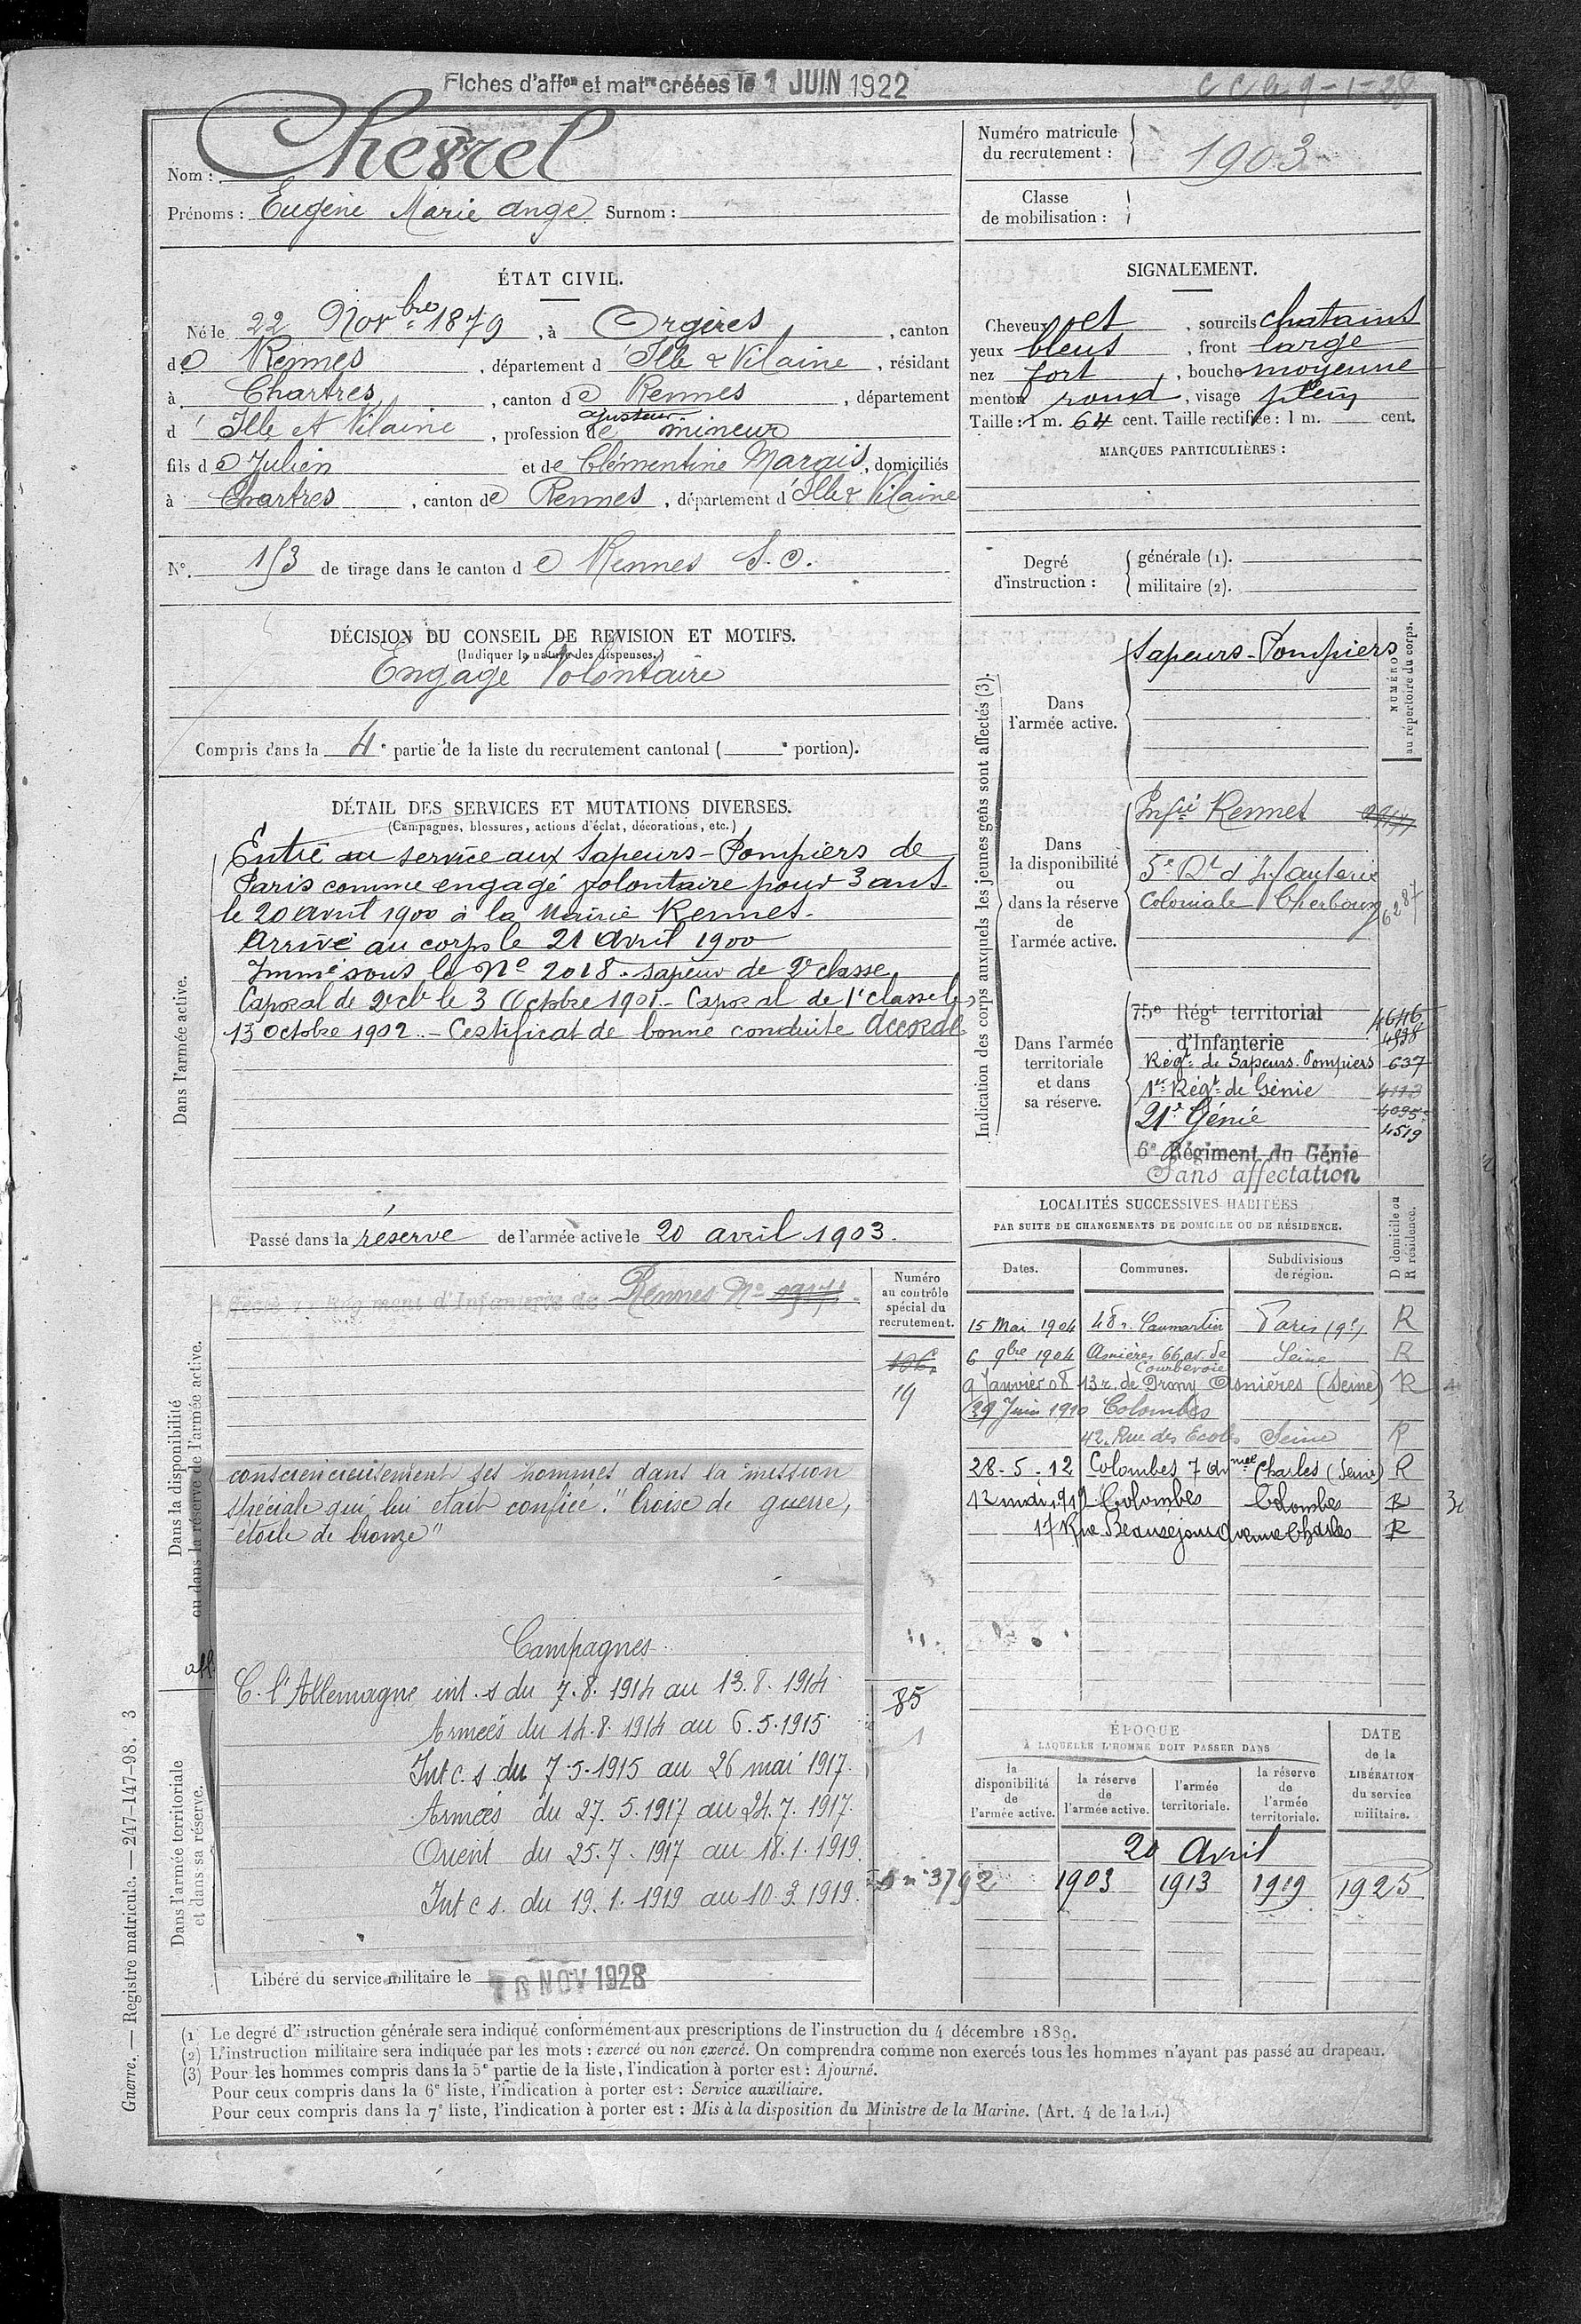 Fiches d'affon et matre créées le 1 JUIN 1922
Nom : Chesrel
Prénoms : Eugène Marie Ange Surnom :
Numéro matricule du recrutement : 1903
Classe de mobilisation :
ÉTAT CIVIL.
Né le 22 Novbre 1879, à Orgères, canton
de Rennes, département d'Ille & Vilaine, résidant
à Chartres, canton de Rennes, département
d'Ille et Vilaine, profession de ajusteur mineur
fils de Julien et de Clémentine Marais, domiciliés
à Chartres, canton de Rennes, département d'Ille & Vilaine
N°. 153 de tirage dans le canton de Rennes S.O.
SIGNALEMENT.
Cheveux et, sourcils chatains
yeux bleus, front large
nez fort, bouche moyenne
menton rond, visage plein
Taille : 1 m. 64 cent. Taille rectifiée : 1 m. cent.
MARQUES PARTICULIÈRES :
Degré d'instruction : générale (1).
militaire (2).
DÉCISION DU CONSEIL DE REVISION ET MOTIFS.
(Indiquer la nature des dispenses.)
Engagé Volontaire
Compris dans la 4e partie de la liste du recrutement cantonal ( e portion).
DÉTAIL DES SERVICES ET MUTATIONS DIVERSES.
(Campagnes, blessures, actions d'éclat, décorations, etc.)
Dans l'armée active.
Entré au service aux Sapeurs-Pompiers de
Paris comme engagé volontaire pour 3 ans
le 20 avril 1900 à la Mairie Rennes.
Arrivé au corps le 21 Avril 1900
Immé sous le No 2018. sapeur de 2e classe
Caporal de 2e cl le 3 Octobre 1901 - Caporal de 1e classe le
13 octobre 1902. - Certificat de bonne conduite accordé
Passé dans la réserve de l'armée active le 20 avril 1903.
Indication des corps auxquels les jeunes gens sont affectés (3).
NUMÉRO au répertoire du corps.
Dans l'armée active.
Sapeurs-Pompiers
Dans la disponibilité ou dans la réserve de l'armée active.
Infie Rennes
5e Rt d'Infanterie
Coloniale Cherbourg 6287
Dans l'armée territoriale et dans sa réserve.
75e Régt territorial 4646
d'Infanterie 4938
Régt de Sapeurs-Pompiers 637
1er Régt de Génie 4113
21e Génie 4095
4519
6e Régiment du Génie
Sans affectation
LOCALITÉS SUCCESSIVES HABITÉES
PAR SUITE DE CHANGEMENTS DE DOMICILE OU DE RÉSIDENCE.
Dates. Communes. Subdivisions de région. D domicile ou R résidence.
15 Mai 1904 48 r. Caumartin Paris (9e) R
6 9bre 1904 Asnières 66 av. de Courbevoie Seine R
9 Janvier 08 13 r. de Prony Asnières (Seine) R
29 Juin 1910 Colombes
42, Rue des Ecoles Seine R
28-5-12 Colombes 7 Charles (Seine) R
12 mai 1919 Colombes Colombes R
17 Rue Beauséjour Avenue Charles R
Dans la disponibilité ou dans la réserve de l'armée active.
Rennes No
Numéro au contrôle spécial du recrutement.
106
19
consciencieusement ses hommes dans la mission
spéciale qui lui était confiée." Croix de guerre,
étoile de bronze"
Campagnes
C. l'Allemagne int. s du 7.8.1914 au 13.8.1914
Armées du 14.8.1914 au 6.5.1915
Int c. s. du 7.5.1915 au 26 mai 1917.
Armées du 27.5.1917 au 24.7.1917.
Orient du 25.7.1917 au 18.1.1919.
Int c s. du 19.1.1919 au 10.3.1919.
85
1
3792
Dans l'armée territoriale et dans sa réserve.
Libéré du service militaire le 10 NOV 1928
ÉPOQUE
À LAQUELLE L'HOMME DOIT PASSER DANS
la disponibilité de l'armée active. la réserve de l'armée active. l'armée territoriale. la réserve de l'armée territoriale.
DATE de la LIBÉRATION du service militaire.
20 Avril
1903 1913 1919 1925
(1) Le degré d'instruction générale sera indiqué conformément aux prescriptions de l'instruction du 4 décembre 1889.
(2) L'instruction militaire sera indiquée par les mots : exercé ou non exercé. On comprendra comme non exercés tous les hommes n'ayant pas passé au drapeau.
(3) Pour les hommes compris dans la 5e partie de la liste, l'indication à porter est : Ajourné.
Pour ceux compris dans la 6e liste, l'indication à porter est : Service auxiliaire.
Pour ceux compris dans la 7e liste, l'indication à porter est : Mis à la disposition du Ministre de la Marine. (Art. 4 de la loi.)
Guerre. — Registre matricule. — 247-147-98. 3